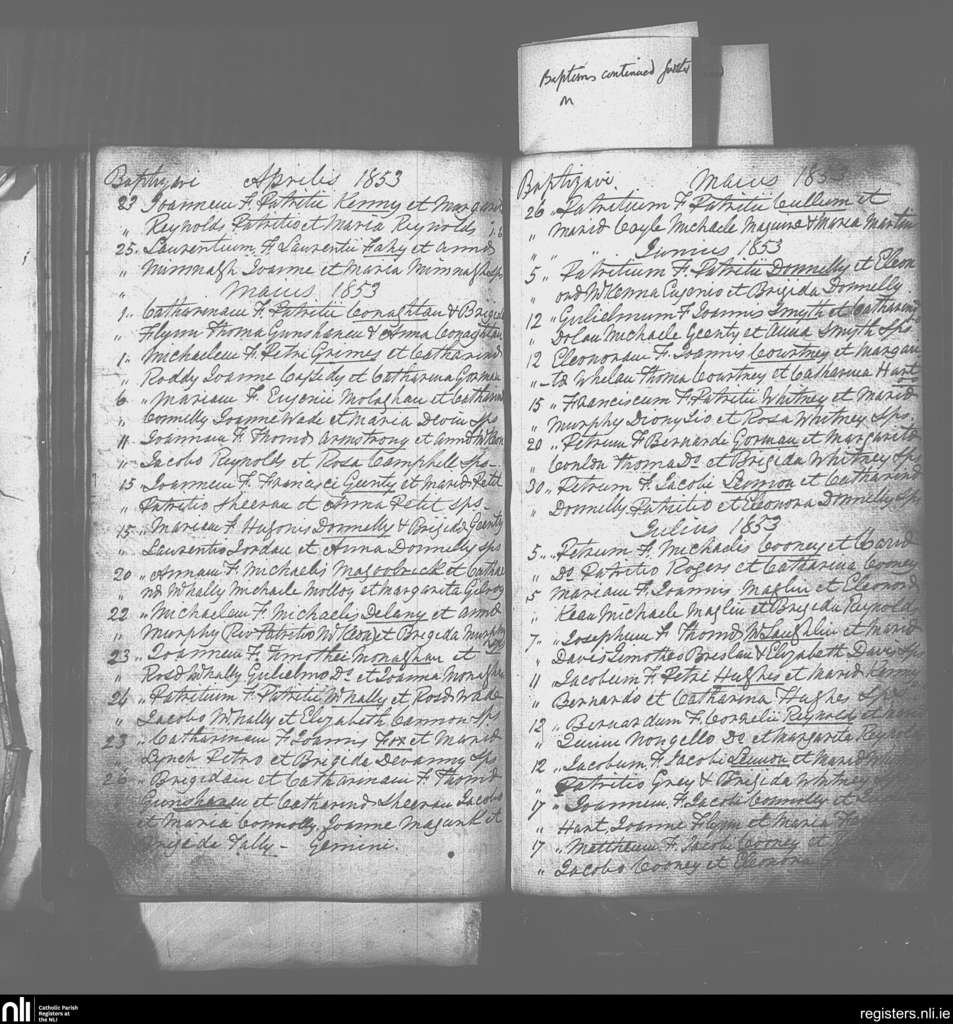 Baptisms continued
Baptizavi Aprilis 1853
23 Joannem F. Patritii Kenny et Margarid
" Reynolds Patritio et Maria Reynolds
25 Laurentium F. Laurentii Fahy et Annd
" Mimnagh Joanne et Maria Mimnagh Sps
" Maius 1853
1 " Catharinam F. Patritii Conaghtan & Brigid
" Flynn Thoma Gunshanan & Anna Conaghtan
1 " Michaelem F. Petri Grimes et Catharind
" Roddy Joanne Cassidy et Catharina Gorman
6 " Mariam F. Eugenii Molaghan et Catharind
" Connelly Joanne Wade et Maria Devin Sps
11 Joannam F. Thomd Armstrong et Annd
" Jacobo Reynolds et Rosa Campbell Sps
15 Joannem F. Francisci Geenty et Marid Petit
" Patritio Sheeran et Anna Petit Sps
15 " Mariam F. Hugonis Donnelly & Brigidd Geenty
" Laurentio Jordan et Anna Donnelly Sps
20 " Annam F. Michaelis Magoolrick et Catha
" nd Whally Michaele Molloy et Margarita Gilroy
22 " Michaelem F. Michaelis Delany et Annd
" Murphy Rev Patritio McKeon et Brigida Murphy
23 " Joannem F. Timothei Monaghan et
" Rosd McNally Gulielmo Do. et Joanna Monaghan
24 " Patritium F. Patritii McNally et Rosd Wade
" Jacobo McNally et Elizabeth Cannon Sps
23 " Catharinam F. Joannis Fox et Marid
" Lynch Petro et Brigida Devanny Sps
26 " Brigidam et Catharinam F. Thomd
Gunshanan et Catharind Sheeran Jacobo
et Maria Connolly. Joanne Magurk et
Brigida Tally - Gemini.
Baptizavi Maius 1853
26 " Patritium F. Patritii Cullum et
" Marid Coyle Michaele Maguire & Maria Martin
" " " Junius 1853
5 " Patritium F. Patritii Donnelly et Eleon
" ord McKenna Eugenio et Brigida Donnelly
12 " Gulielmum F. Joannis Smyth et Catharind
" Dolan Michaele Geenty et Anna Smyth Sps
12 Eleonoram F. Joannis Courtney et Margari
" td Whelan Thoma Courtney et Catharina Hart
15 " Franciscum F. Patritii Whitney et Marid
" Murphy Dionysio et Rosa Whitney Sps.
20 " Petrum F. Bernardi Gorman et Margaritd
" Conlon Thoma Do. et Brigida Whitney Sps
30 " Petrum F. Jacobi Lennon et Catharind
" Donnelly Patritio et Eleonora Donnelly Sps
Julius 1853
5 " Petrum F. Michaelis Cooney et Marid
" Do. Patritio Rogers et Catharina Cooney
5 " Mariam F. Joannis Maglin et Eleonord
" Kean Michaele Maglin et Brigida Reynolds
7 " Josephum F. Thomd McLaughlin et Marid
" Davis Timotheo Breslan & Elizabeth Davis Sps
11 " Jacobum F. Petri Hughes et Marid Kenny
" Bernardo et Catharina Hughes Sps
12 " Bernardum F. Cornelii Reynolds et
" Quinn Do. et Margarita Reynolds
12 " Jacobum F. Jacobi Lennon et Marid
" Patritio Grey & Brigida Whitney
17 " Joannem F. Jacobi Connolly et
" Hart, Joanne Flynn et Maria
17 " Mattheum F. Jacobi Cooney et
" Jacobo Cooney et Eleonora
nli
Catholic Parish
Registers at
the NLI
registers.nli.ie